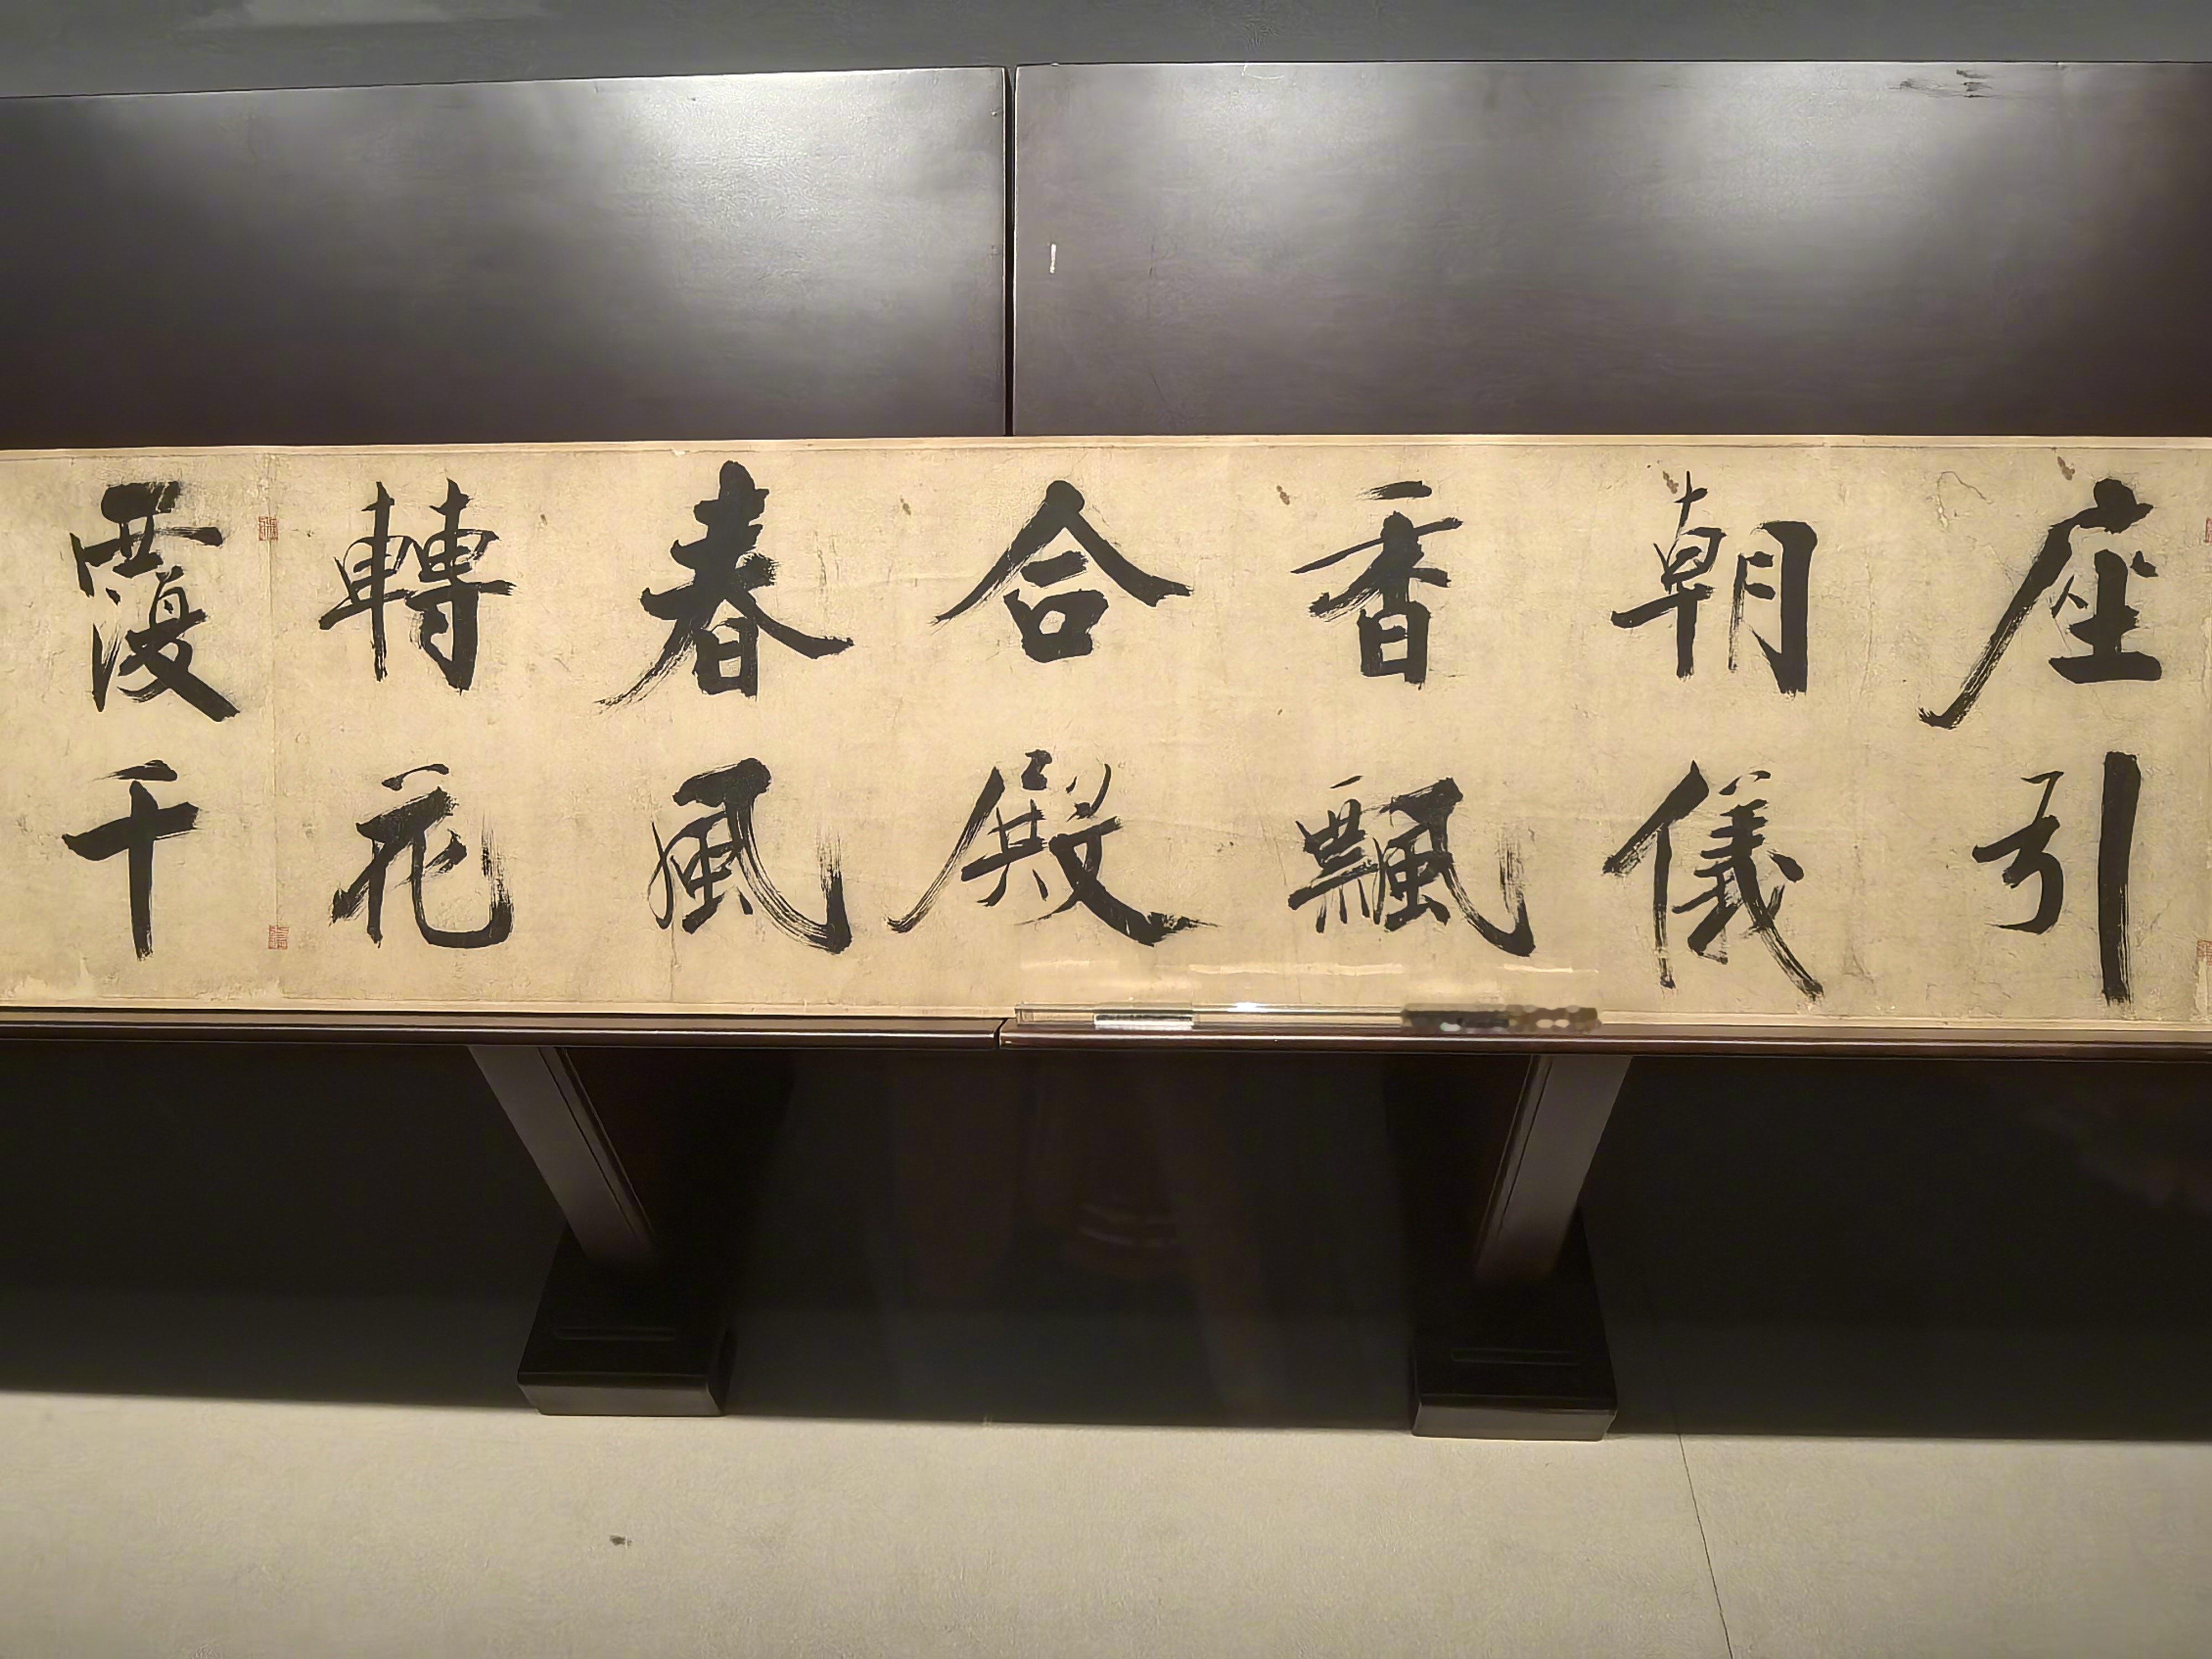 座引
朝儀
香飄
合殿
春風
轉花
覆千